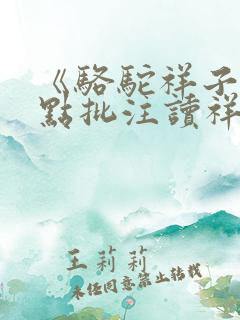 《駱駝祥子
點批注讀祥
王莉莉
未經同意禁止轉載